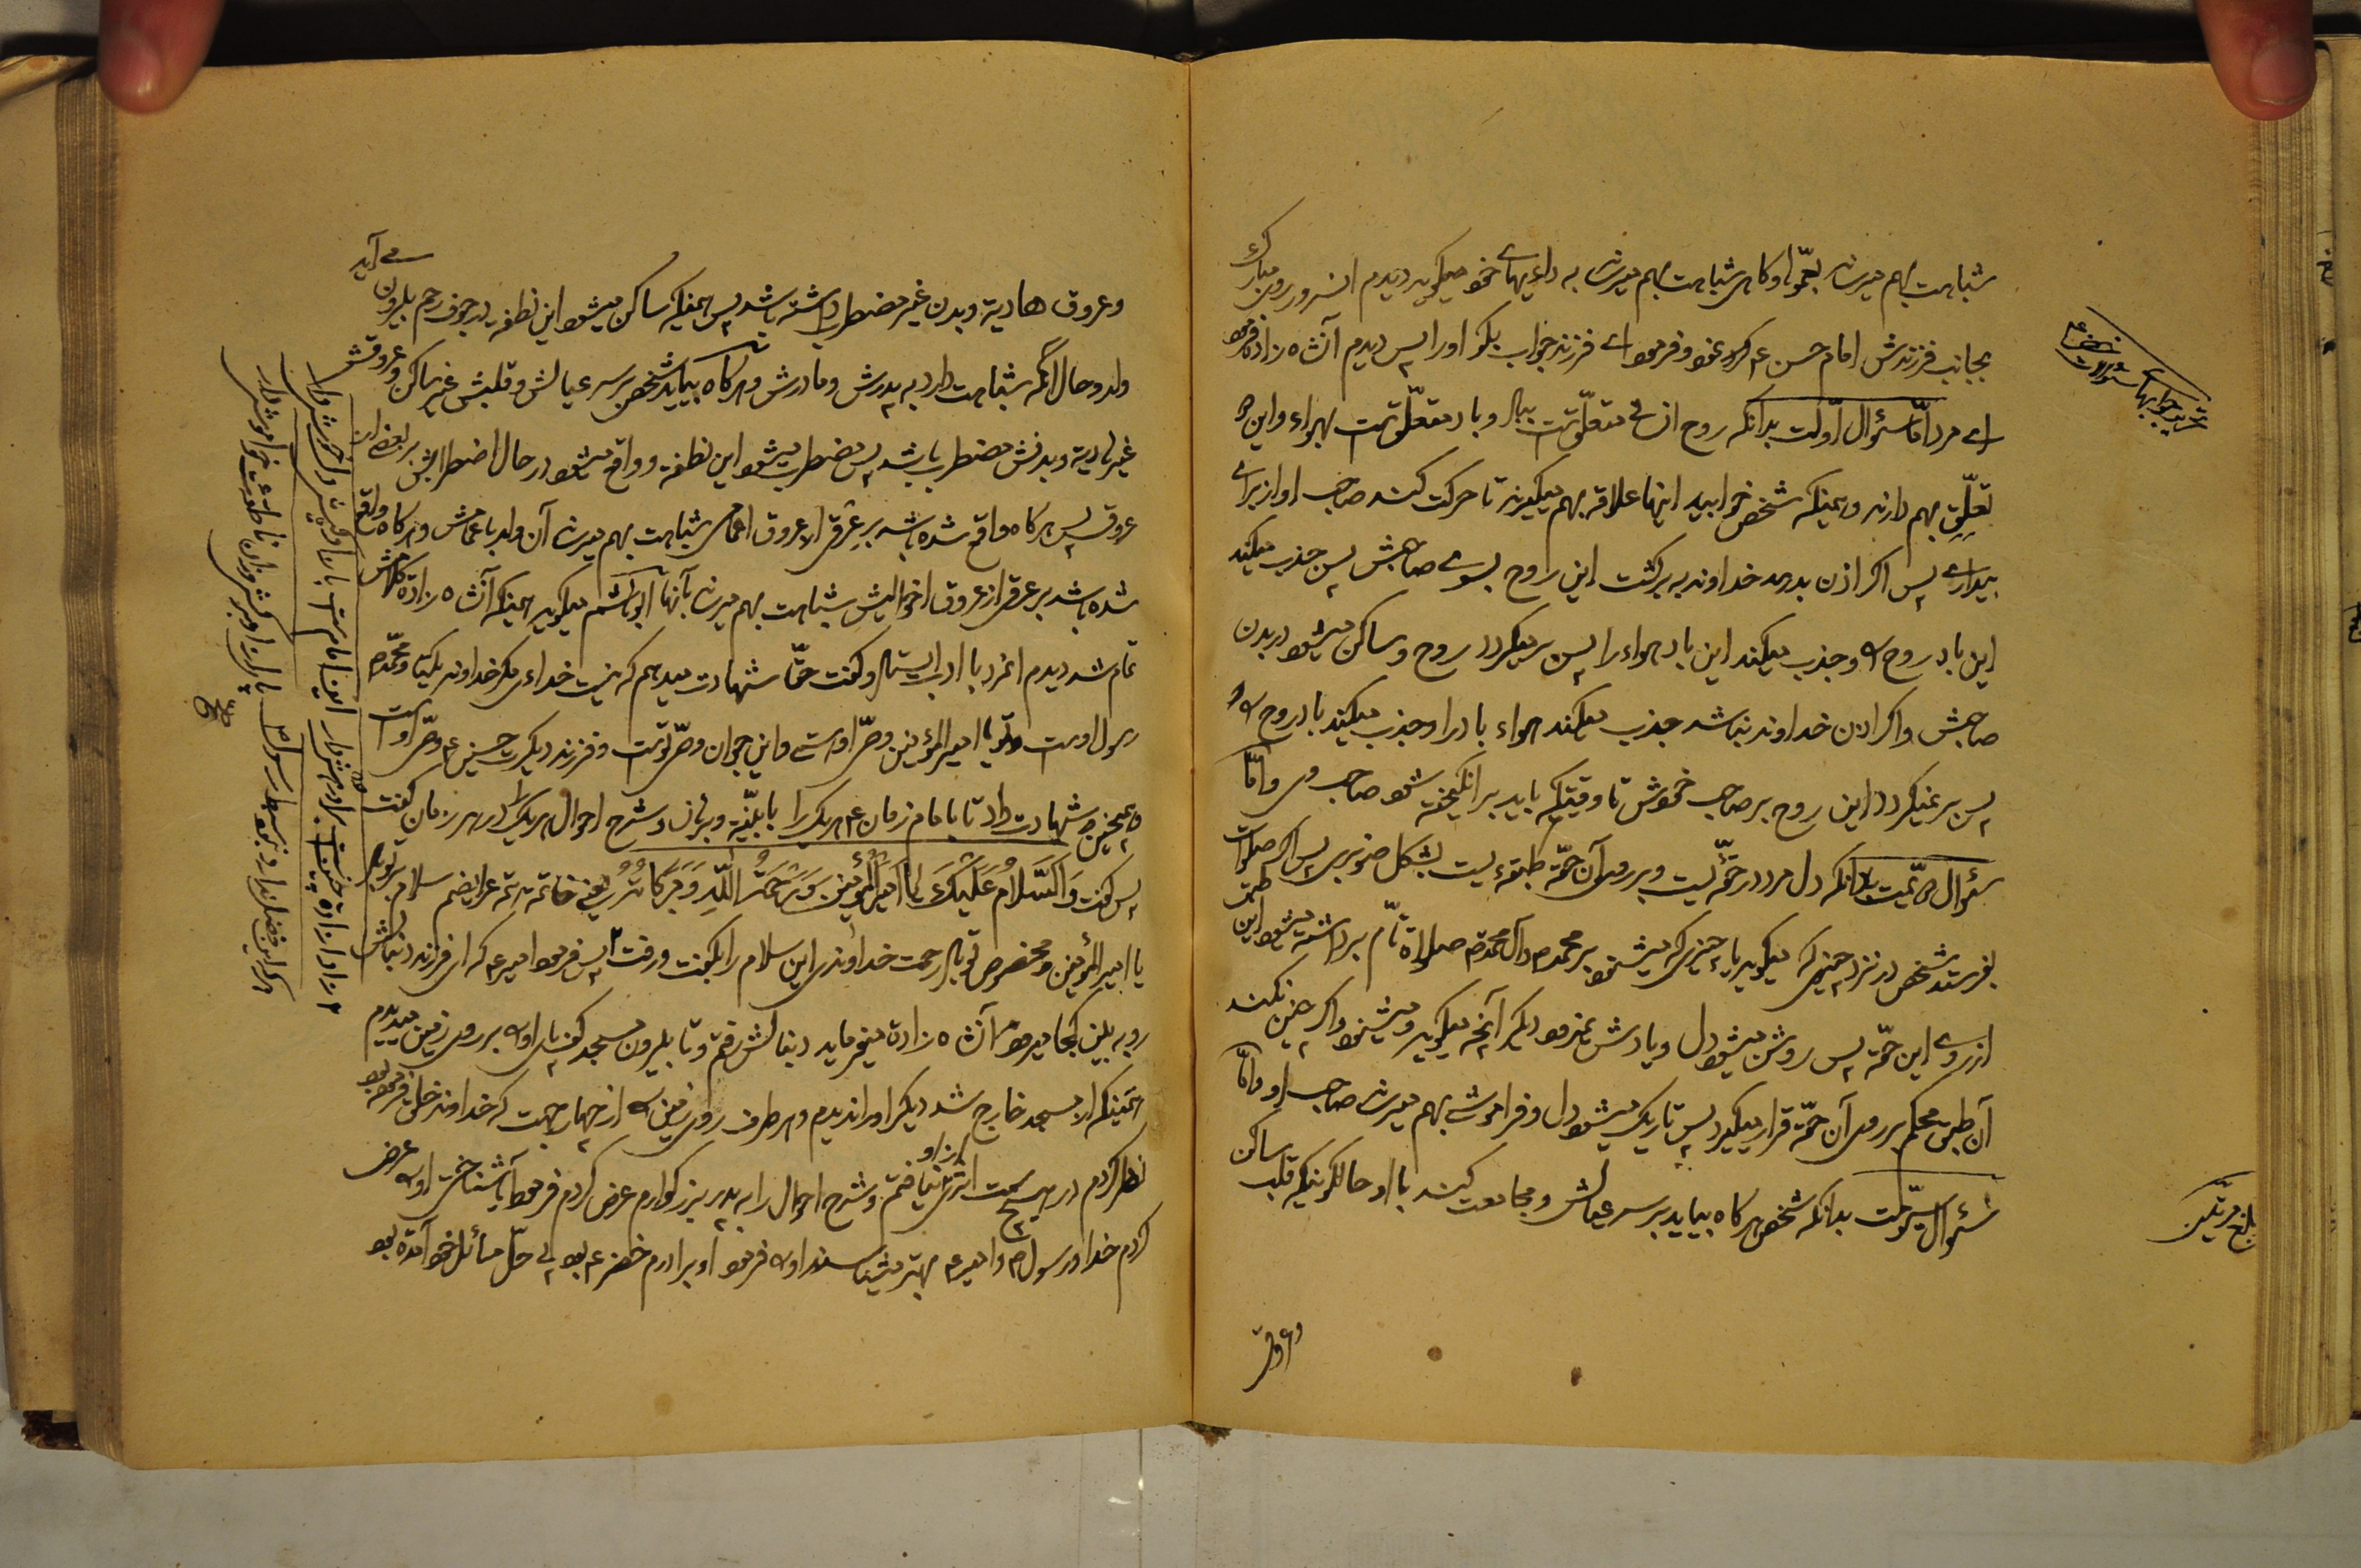 شباهت بهم میرساند بعمّو او کاهی شباهت بهم میرساند به دائیهای خود میکوید دیدم انسرور روی مبارک
بجانب فرزندش امام حسن ع کرده نمود و فرمود ای فرزند جواب بکو او را پس دیدم آنشاهزاده فرمود
ای مرد امّا سئوال اوّلت بدانکه روح از ان متعلّقست بباد و باد متعلّقست بهواء و این
تعلّق بهم دارند و همینکه شخص خوابید اینها علاقه بهم میکیرند تا حرکت کند صاحب او از برای
بیداری پس اکر اذن بدهد خداوند به برکشت این روح بسوی صاحبش پس جذب میکند
این باد روح را و جذب میکند این باد هواء را پس بر میکردد روح و ساکن میشود در بدن
صاحبش و اکر اذن خداوند نباشد جذب میکند هواء باد را و جذب میکند باد روح را
پس بر نمیکردد این روح بر صاحب خودش تا وقتیکه باید بر انکیخته شود صاحب وی و امّا
سئوال دویّمیت بدانکه دل مرد در حقّه‌ایست و بر روی آن حقّه طبقه‌ایست بشکل صنوبری پس اکر صلوات
بفرستد شخص در نزد چیزی که میکوید یا چیزی که میشنود بر محمد و آل محمد صلواة تامّ برداشته میشود این طبق
از روی این حقّه پس روشن میشود دل و یادش نمیرود دیکر آنچه میکوید و میشنود و اکر چنین نکند
آن طبق محکم بر روی آن حقّه قرار میکیرد پس تاریک میشود دل و فراموشی بهم میرساند صاحب او و امّا
سئوال سیّومت بدانکه شخص هرکاه بیاید بر سر عیالش و مجامعت کند با او حالکونیکه قلب ساکن
و عروق
بلغ مرّتین
و عروق هادیة و بدن غیر مضطرب داشته باشد پس همینکه ساکن میشود این نطفه در جوف رحم بیرون می آید
ولد و حال آنکه شباهت دارد به پدرش و مادرش و هرکاه بیاید شخص بر سر عیالش و قلبش غیر ساکن و عروقش
غیر هادیة و بدنش مضطرب باشد پس مضطرب میشود این نطفه و واقع میشود در حال اضطرابش بر بعض از
عروق پس هرکاه واقع شده باشد بر عرقی از عروق اعمامی شباهت بهم میرساند آن ولد باعمامش و هرکاه واقع
شده باشد بر عرقی از عروق اخوالیش شباهت بهم میرساند بآنها ابوهاشم میکوید همینکه آنشاهزاده کلامش
تمام شد دیدم انمرد با ادب ایستاد و کفت حقّا شهادت میدهم که نیست خداءی مکر خداوند یکتا و محمّد ص
رسول اوست و تو یا امیر المؤمنین وصیّ اوستی و این جوان وصیّ توست و فرزند دیکرت حسین ع وصیّ اوست
و همچنین شهادت داد تا بامام زمان ع هر یک را بابلغیّه و برساند و شرح احوال هر یک را در هر زمان کفت
پس کفت وَالسَّلامُ عَلَیْكَ یا امیرَ المُؤمِنینَ وَرَحْمَتُ اللّهِ وَبَرَکاتُهُ یعنی خاتمه و تتمّه عرایضم سلام بر تو باد
یا امیر المؤمنین و مخصوص تو باد رحمت خداوندی این سلام را بکفت و رفت پس فرمود امیر ع که ای فرزند دنبالش
رو به بین کجا میرود آنشاهزاده میفرماید دنبالش رفتم و تا بیرون مسجد کف پای او را بر روی زمین میدیدم
همینکه از مسجد خارج شد دیکر او را ندیدم و هر طرف روی زمین را از چهار جهت که خداوند خلق فرموده بود
نظر کردم در هیچ سمت اثری از او نیافتم و شرح احوال را به پدر بزرکوارم عرض کردم فرمود آیا شناختی او را عرض
کردم خدا و رسول ص و امیر ع بهتر میشناسند او را فرمود او برادرم خضر ع بود پی حلّ مسائل خود آمده بود